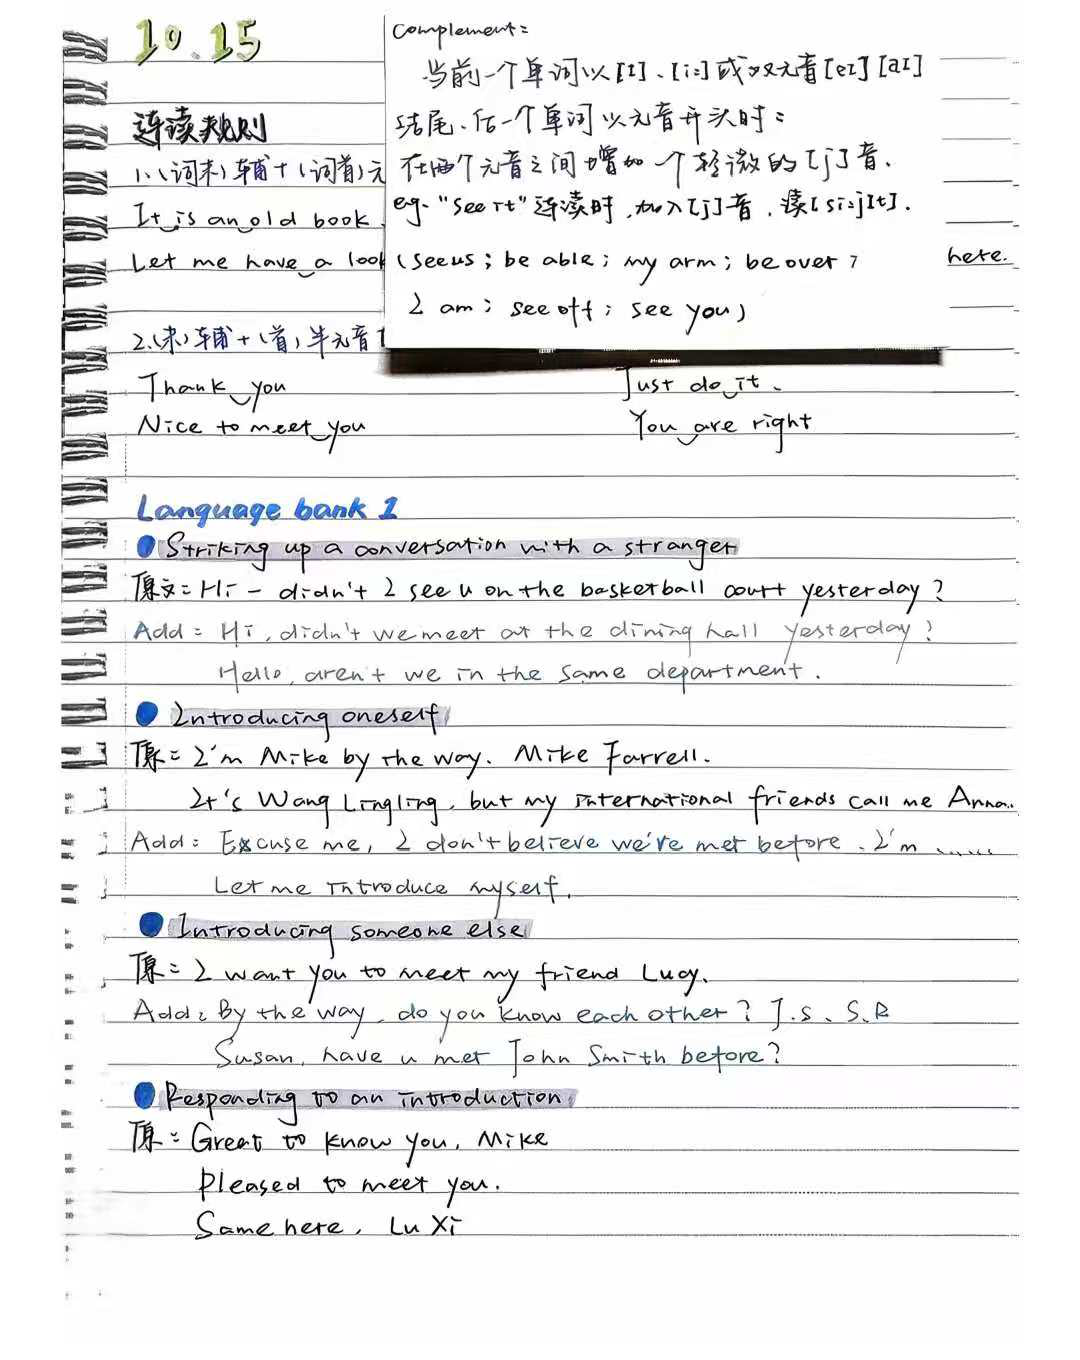 10.15
Complement:
当前一个单词以[I]、[i:]或双元音[eI][aI]
结尾、后一个单词以元音开头时：
在两个元音之间增加一个轻微的[j]音.
eg. "see it" 连读时,加入[j]音,读[si:jIt].
(see us; be able; my arm; be over;
I am; see off; see you)
连读规则
1.(词末)辅+(词首)元
It is an old book.
Let me have a look
here.
2.(末)辅+(首)半元音
Thank you
Just do it.
Nice to meet you
You are right
Language bank 1
Striking up a conversation with a stranger
原文: Hi - didn't I see u on the basketball court yesterday?
Add: Hi, didn't we meet at the dining hall yesterday?
Hello, aren't we in the same department.
Introducing oneself
原: I'm Mike by the way. Mike Farrell.
It's Wang Lingling, but my international friends call me Anna..
Add: Excuse me, I don't believe we've met before. I'm ......
Let me introduce myself.
Introducing someone else
原: I want you to meet my friend Lucy.
Add: By the way, do you know each other? J.S、S.R
Susan, have u met John Smith before?
Responding to an introduction
原: Great to know you, Mike
Pleased to meet you.
Same here, Lu Xi